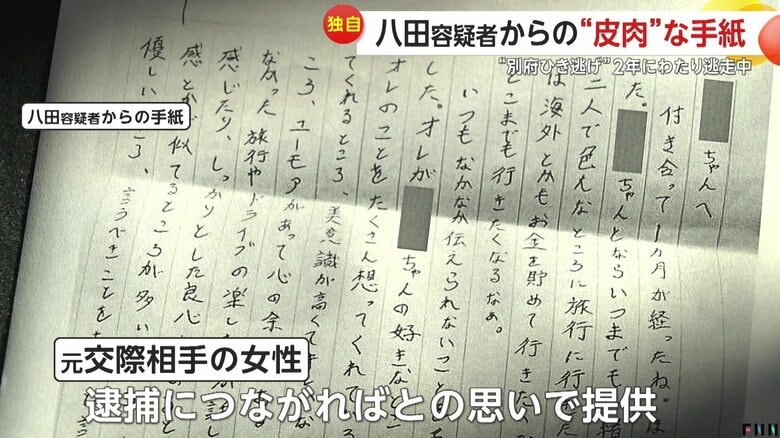 独自
八田容疑者からの“皮肉”な手紙
“別府ひき逃げ”2年にわたり逃走中
八田容疑者からの手紙
ちゃんへ
付き合って1ヵ月が経ったね。
た。 ちゃんとならいつまでも
二人で色んなところに旅行に行
は海外とかもお金を貯めて行きた
どこまでも行きたくなるなぁ。
いつもなかなか伝えられないこと
した。オレが ちゃんの好きな
オレのことをたくさん想ってくれて
てくれるところ、美意識が高くて
ころ、ユーモアがあって心の余
なかった旅行やドライブの楽し
感じたり、しっかりとした良心
感とか似てるところが多い
優しい ころ、言うべきことを
元交際相手の女性
逮捕につながればとの思いで提供
FNN